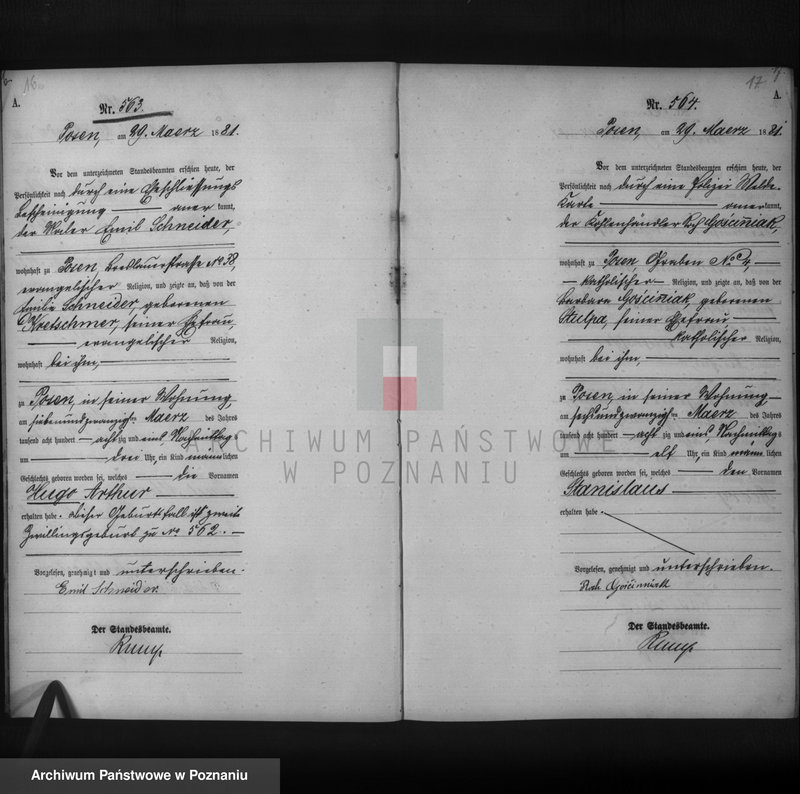 16
A.
Nr. 563.
Posen, am 29. Maerz 1881.
Vor dem unterzeichneten Standesbeamten erschien heute, der
Persönlichkeit nach durch eine Eheschliessungs
bescheinigung anerkannt,
der Maler Emil Schneider,
wohnhaft zu Posen, Breslauerstrasse No 38,
evangelischer Religion, und zeigte an, daß von der
Emilie Schneider, geborenen
Kretschmer, seiner Ehefrau,
evangelischer Religion,
wohnhaft bei ihm,
zu Posen, in seiner Wohnung
am siebenundzwanzigsten Maerz des Jahres
tausend acht hundert achtzig und eins Nachmittags
um drei Uhr, ein Kind männlichen
Geschlechts geboren worden sei, welches die Vornamen
Hugo Arthur
erhalten habe. Dieser Geburtsfall ist zweite
Zwillingsgeburt zu No 562.
Vorgelesen, genehmigt und unterschrieben.
Emil Schneider
Der Standesbeamte.
17
A.
Nr. 564.
Posen, am 29. Maerz 1881.
Vor dem unterzeichneten Standesbeamten erschien heute, der
Persönlichkeit nach durch eine Polizei Melde-
Karte anerkannt,
der Kohlenhändler Gościniak,
wohnhaft zu Posen, Graben No 4,
katholischer Religion, und zeigte an, daß von der
Barbara Gościniak, geborenen
Stulpa, seiner Ehefrau
katholischer Religion,
wohnhaft bei ihm,
zu Posen, in seiner Wohnung
am sechsundzwanzigsten Maerz des Jahres
tausend acht hundert achtzig und eins Nachmittags
um elf Uhr, ein Kind männlichen
Geschlechts geboren worden sei, welches den Vornamen
Stanislaus
erhalten habe.
Vorgelesen, genehmigt und unterschrieben.
Gościniak
Der Standesbeamte.
ARCHIWUM PAŃSTWOWE
W POZNANIU
Archiwum Państwowe w Poznaniu